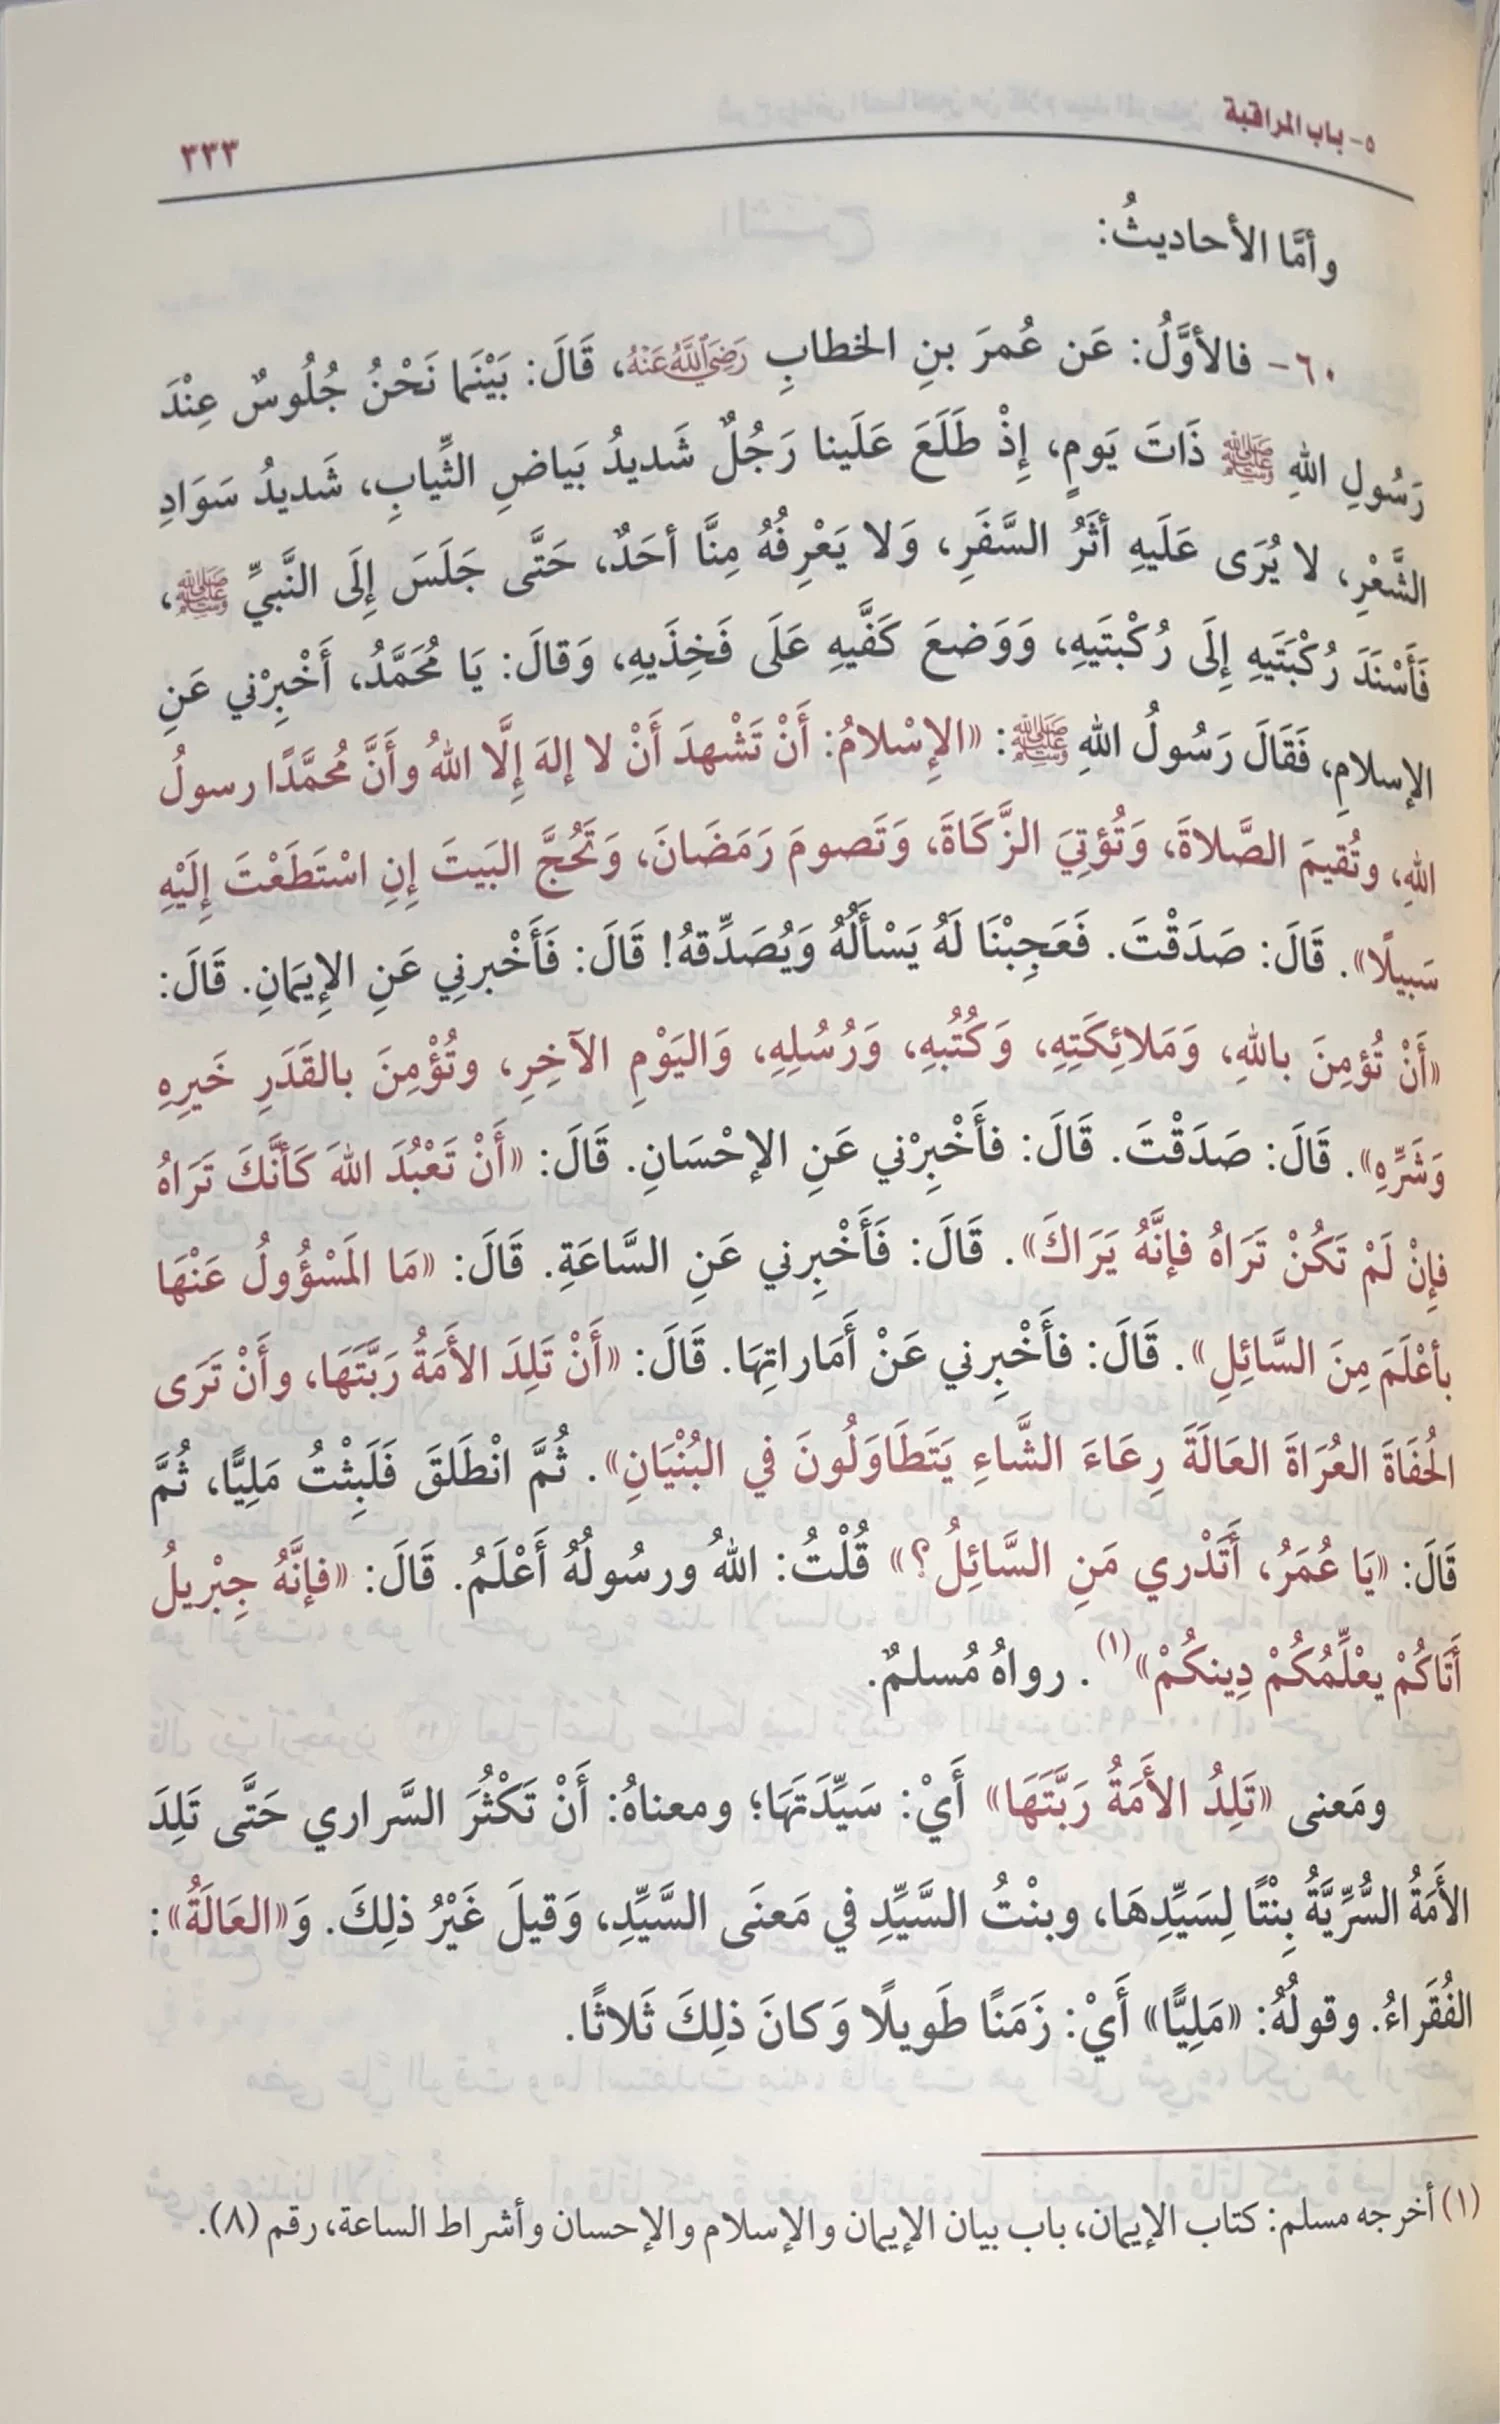 ٥- باب المراقبة
٣٣٣
وأمَّا الأحاديثُ:
٦٠- فالأوَّلُ: عَن عُمرَ بنِ الخطابِ رَضِيَ اللَّهُ عَنْهُ، قَالَ: بَيْنَما نَحْنُ جُلُوسٌ عِنْدَ
رَسُولِ اللهِ ﷺ ذَاتَ يَومٍ، إِذْ طَلَعَ عَلَينا رَجُلٌ شَديدُ بَياضِ الثِّيابِ، شَديدُ سَوَادِ
الشَّعْرِ، لا يُرَى عَلَيهِ أثَرُ السَّفَرِ، وَلا يَعْرِفُهُ مِنَّا أحَدٌ، حَتَّى جَلَسَ إِلَى النَّبيِّ ﷺ،
فَأَسْنَدَ رُكْبَتَيهِ إِلَى رُكْبتَيهِ، وَوَضعَ كَفَّيهِ عَلَى فَخِذَيهِ، وَقالَ: يَا مُحَمَّدُ، أَخْبِرْني عَنِ
الإسلامِ، فَقَالَ رَسُولُ اللهِ ﷺ: «الإِسْلامُ: أَنْ تَشْهدَ أَنْ لا إلهَ إِلَّا اللهُ وأَنَّ مُحمَّدًا رسولُ
اللهِ، وتُقيمَ الصَّلاةَ، وَتُؤتِيَ الزَّكَاةَ، وَتَصومَ رَمَضَانَ، وَتَحُجَّ البَيتَ إِنِ اسْتَطَعْتَ إِلَيْهِ
سَبيلًا». قَالَ: صَدَقْتَ. فَعَجِبْنَا لَهُ يَسْأَلُهُ وَيُصَدِّقهُ! قَالَ: فَأَخْبرنِي عَنِ الإِيمَانِ. قَالَ:
«أَنْ تُؤمِنَ باللهِ، وَمَلائِكَتِهِ، وَكُتُبهِ، وَرُسُلِهِ، وَاليَوْمِ الآخِرِ، وتُؤْمِنَ بالقَدَرِ خَيرِهِ
وَشَرِّهِ». قَالَ: صَدَقْتَ. قَالَ: فأَخْبِرْني عَنِ الإحْسَانِ. قَالَ: «أَنْ تَعْبُدَ اللهَ كَأَنَّكَ تَرَاهُ
فإِنْ لَمْ تَكُنْ تَرَاهُ فإنَّهُ يَرَاكَ». قَالَ: فَأَخْبِرني عَنِ السَّاعَةِ. قَالَ: «مَا المَسْؤُولُ عَنْهَا
بأعْلَمَ مِنَ السَّائِلِ». قَالَ: فأَخْبِرني عَنْ أَمَاراتِهَا. قَالَ: «أَنْ تَلِدَ الأَمَةُ رَبَّتَهَا، وأَنْ تَرَى
الحُفَاةَ العُرَاةَ العَالَةَ رِعَاءَ الشَّاءِ يَتَطَاوَلُونَ في البُنْيَانِ». ثُمَّ انْطَلَقَ فَلَبِثْتُ مَلِيًّا، ثُمَّ
قَالَ: «يَا عُمَرُ، أَتَدْري مَنِ السَّائِلُ؟» قُلْتُ: اللهُ ورسُولُهُ أَعْلَمُ. قَالَ: «فإنَّهُ جِبْريلُ
أَتَاكُمْ يعْلِّمُكُمْ دِينكُمْ»(١). رواهُ مُسلمٌ.
ومَعنى «تَلِدُ الأَمَةُ رَبَّتَهَا» أَيْ: سَيِّدَتَهَا؛ ومعناهُ: أَنْ تَكْثُرَ السَّراري حَتَّى تَلِدَ
الأَمَةُ السُّرِّيَّةُ بِنْتًا لِسَيِّدِهَا، وبنْتُ السَّيِّدِ في مَعنَى السَّيِّدِ، وَقيلَ غَيْرُ ذلِكَ. وَ«العَالَةُ»:
الفُقَراءُ. وقولُهُ: «مَلِيًّا» أَيْ: زَمَنًا طَويلًا وَكانَ ذلِكَ ثَلاثًا.
(١) أخرجه مسلم: كتاب الإيمان، باب بيان الإيمان والإسلام والإحسان وأشراط الساعة، رقم (٨).